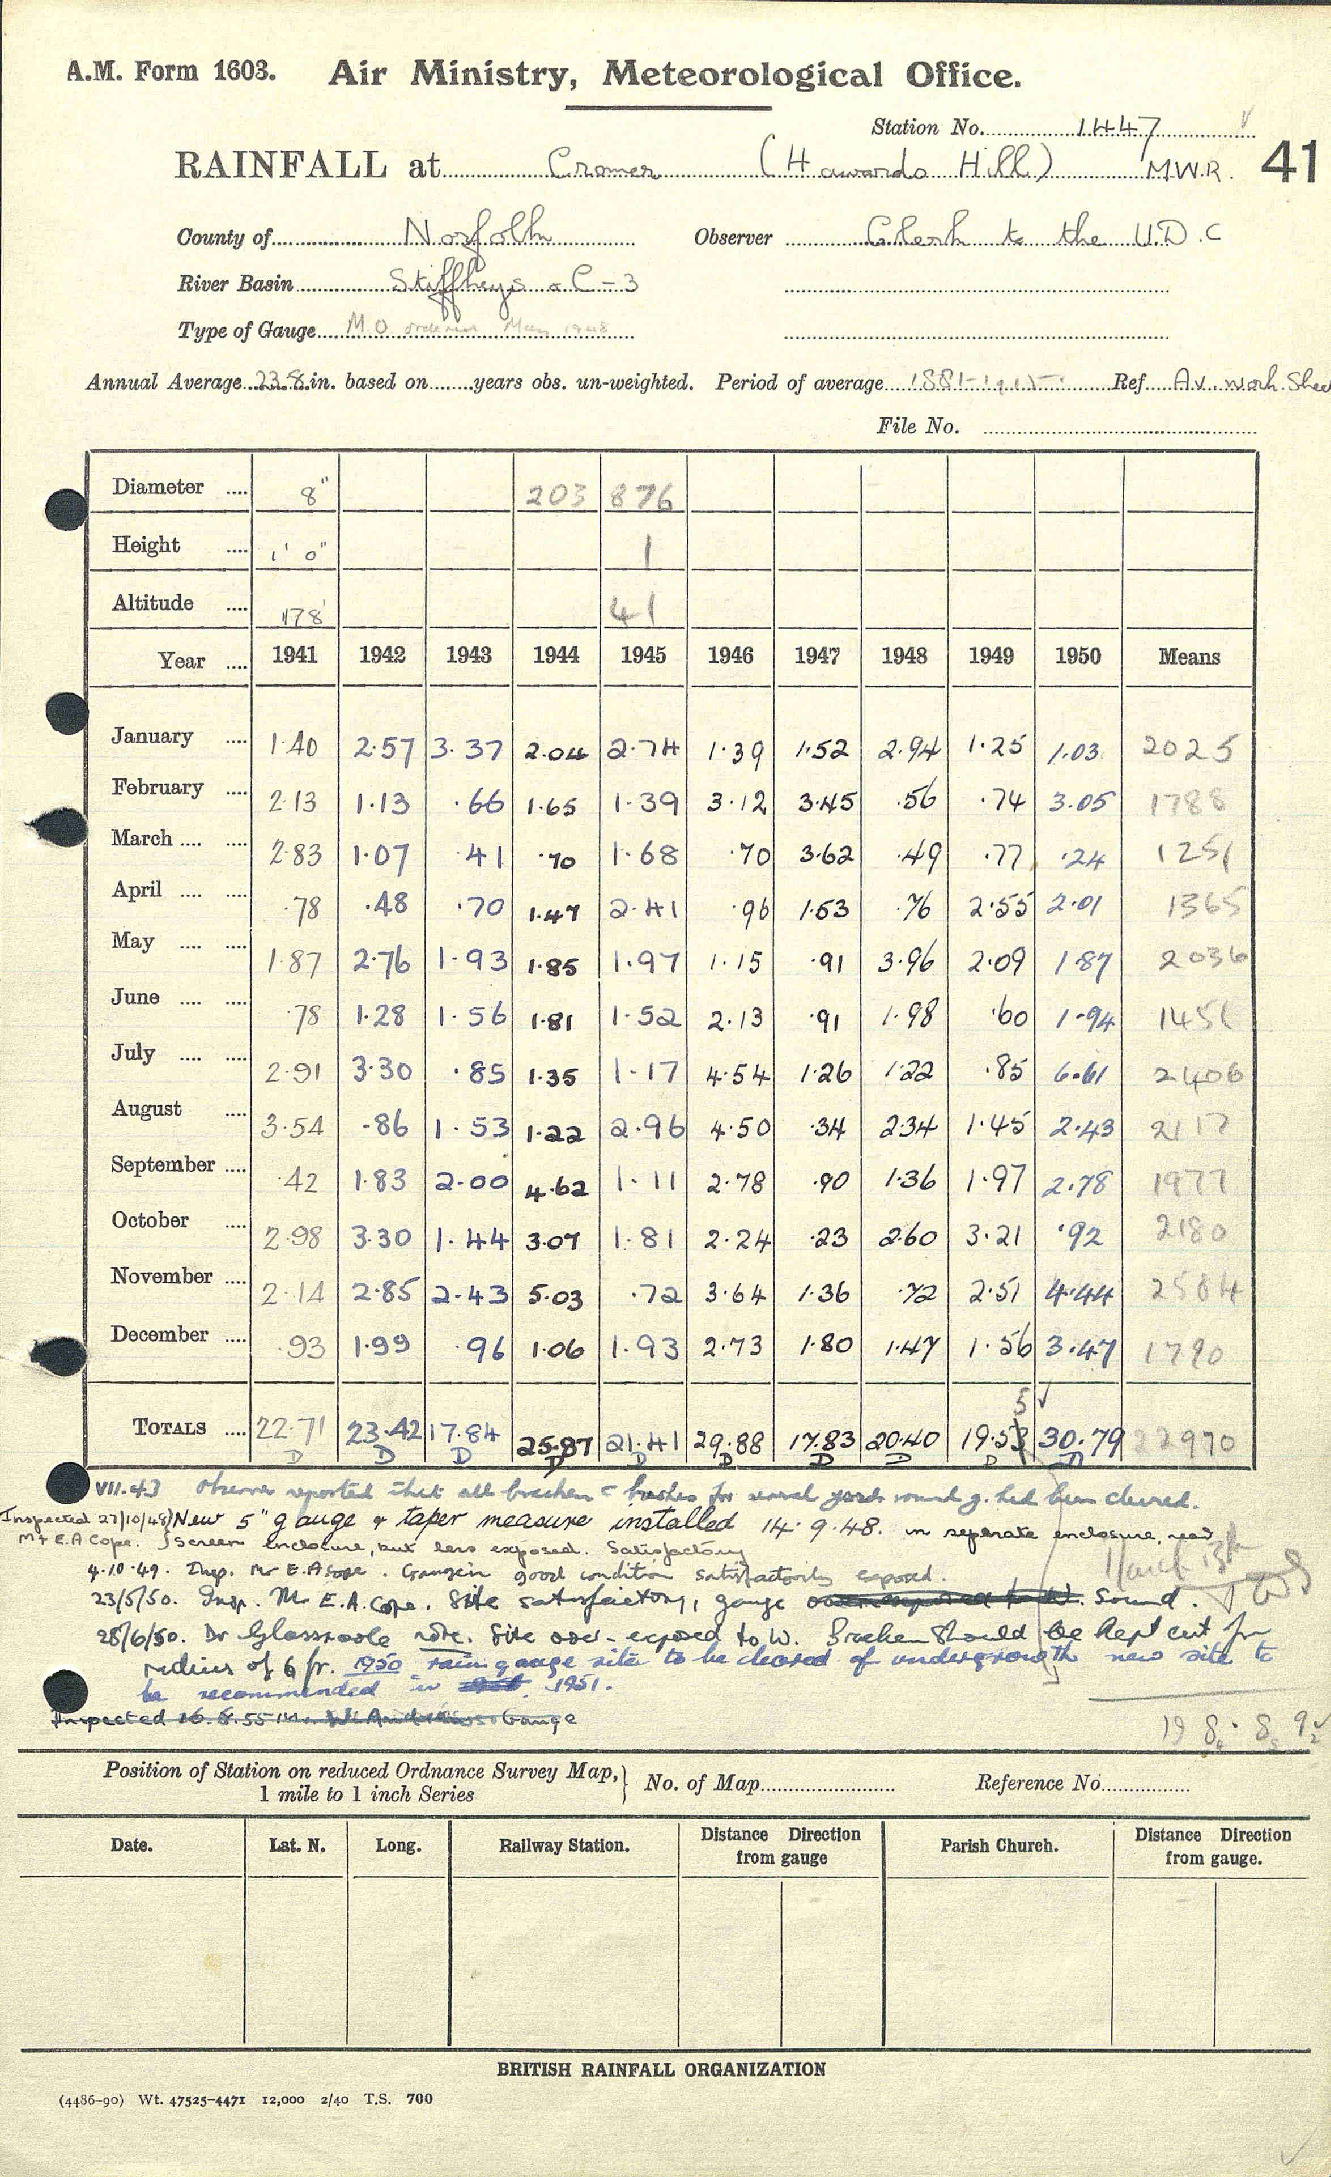 A.M. Form 1603. Air Ministry, Meteorological Office.
Station No. 1447
RAINFALL at Cromer (Howards Hill) M.W.R. 41
County of Norfolk Observer Clerk to the U.D.C
River Basin Stiffkeys & C-3
Type of Gauge M.O. ordered May 1948
Annual Average 23.8 in. based on years obs. un-weighted. Period of average 1881-1915 Ref. Av. Work Shee
File No.
Diameter .... 8" 203 876
Height .... 1' 0" 1
Altitude .... 178' 41
Year .... 1941 1942 1943 1944 1945 1946 1947 1948 1949 1950 Means
January .... 1.40 2.57 3.37 2.04 2.74 1.39 1.52 2.94 1.25 1.03 2025
February .... 2.13 1.13 .66 1.65 1.39 3.12 3.45 .56 .74 3.05 1788
March .... .... 2.83 1.07 .41 .70 1.68 .70 3.62 .49 .77 .24 1251
April .... .... .78 .48 .70 1.47 2.41 .96 1.53 .76 2.55 2.01 1365
May .... .... 1.87 2.76 1.93 1.85 1.97 1.15 .91 3.96 2.09 1.87 2036
June .... .... .78 1.28 1.56 1.81 1.52 2.13 .91 1.98 .60 1.94 1451
July .... .... 2.91 3.30 .85 1.35 1.17 4.54 1.26 1.22 .85 6.61 2406
August .... 3.54 .86 1.53 1.22 2.96 4.50 .34 2.34 1.45 2.43 2117
September .... .42 1.83 2.00 4.62 1.11 2.78 .90 1.36 1.97 2.78 1977
October .... 2.98 3.30 1.44 3.07 1.81 2.24 .23 2.60 3.21 .92 2180
November .... 2.14 2.85 2.43 5.03 .72 3.64 1.36 .72 2.51 4.44 2584
December .... .93 1.99 .96 1.06 1.93 2.73 1.80 1.47 1.56 3.47 1790
5
TOTALS .... 22.71 23.42 17.84 25.87 21.41 29.88 17.83 20.40 19.53 30.79 22970
D D D D D D D D D D
VII.43 Observer reported that all bracken & bushes for several yards round g. had been cleared.
Inspected 27/10/48 New 5" gauge & taper measure installed 14.9.48. in separate enclosure, near
Mr E.A Cope. Screen enclosure, but less exposed. Satisfactory
4.10.49. Insp. Mr E.A Cope. Gauge in good condition satisfactorily exposed.
March 13th
23/5/50. Insp. Mr E.A. Cope. Site satisfactory, gauge over-exposed to W. Sound.
28/6/50. Dr Glasspoole note. Site over-exposed to W. Bracken should be kept cut for
radius of 6 ft. 1950 rain gauge site to be cleared of undergrowth new site to
be recommended in 1951.
Inspected 16.8.55 Gauge
Position of Station on reduced Ordnance Survey Map, 1 mile to 1 inch Series No. of Map Reference No
Date. Lat. N. Long. Railway Station. Distance Direction from gauge Parish Church. Distance Direction from gauge.
BRITISH RAINFALL ORGANIZATION
(4486-90) Wt. 47525-4471 12,000 2/40 T.S. 700